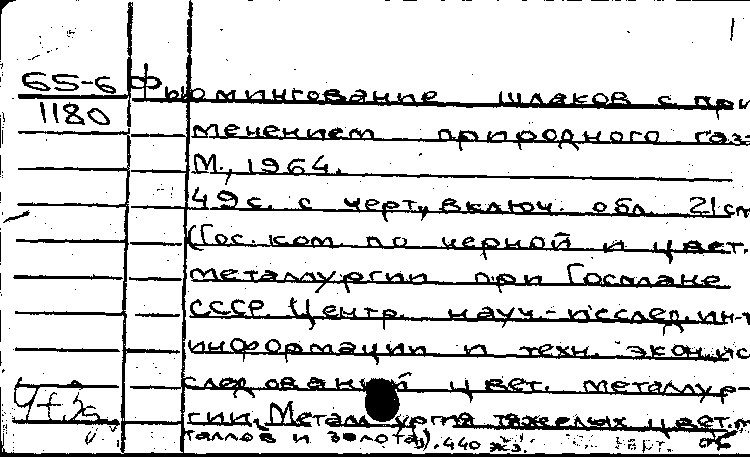 65-6
1180
Фьюмингование шлаков с при
менением природного газ
М., 1964.
49 с. с черт., включ. обл. 21 см
(Гос. ком. по черной и цвет.
металлургии при Госплане
СССР. Центр. науч.-исслед. ин-т
информации и техн. экон. ис
следований цвет. металлур-
гии. Металлургия тяжелых цвет. м
таллов и золота). 440 экз.